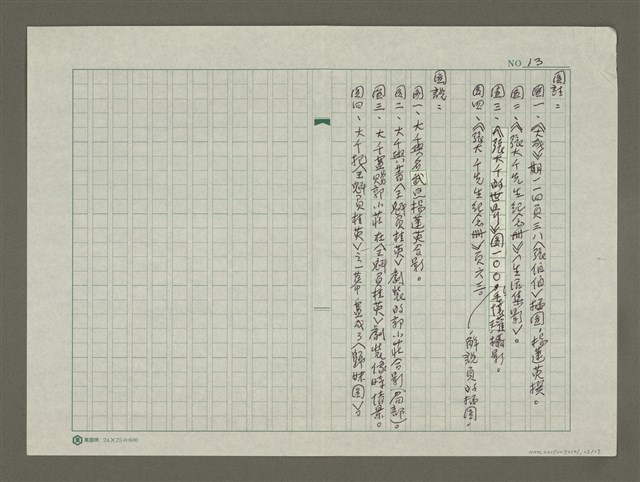 NO. 13
圖註：
圖一、《大成》期一一四頁三八〈張伯伯〉插圖，楊蓮英撰。
圖二、《張大千先生紀念冊》〈生活集影〉。
圖三、《張大千的世界》圖一〇〇，王懷瓘攝影。
圖四、《張大千先生紀念冊》頁六三。 解說頁的插圖。
圖說：
圖一、大千與名武旦楊蓮英合影。
圖二、大千與著〈金縣員桂英〉劇裝的郭小莊合影（局部）。
圖三、大千畫贈郭小莊在〈金縣員桂英〉劇裝像時情景。
圖四、大千把〈金縣員桂英〉之一幕畫成了〈歸妹圖〉
24×25＝600